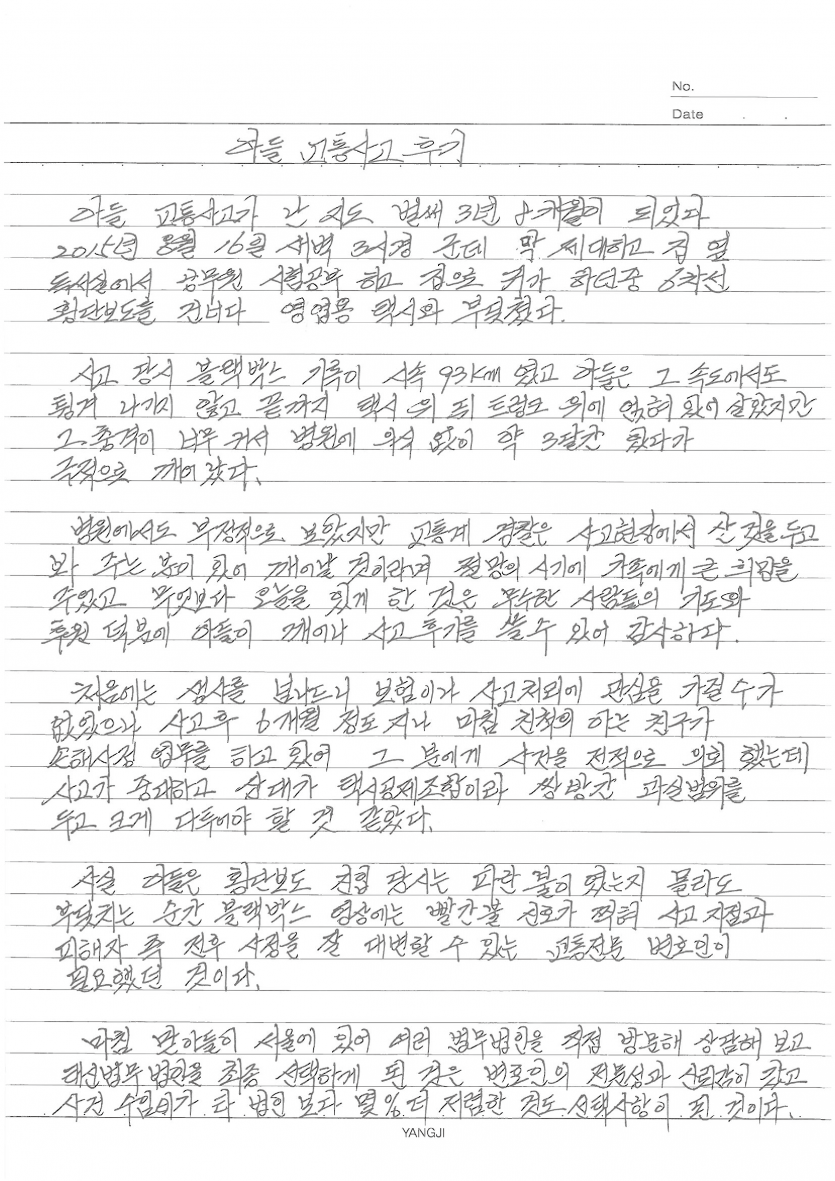 No.
Date . .
아들 교통사고 후기
아들 교통사고가 난 지도 벌써 3년 8개월이 되었다
2015년 8월 16일 새벽 3시경 군데 막 제대하고 집 옆
독서실에서 공무원 시험공부 하고 집으로 귀가 하던중 6차선
횡단보도를 건너다 영업용 택시와 부딪혔다.
사고 당시 블랙박스 기록이 시속 93km 였고 아들은 그 속도에서도
튕겨 나가지 않고 끝까지 택시 위 뒤 트렁크 위에 얹혀 있어 살았지만
그 충격이 너무 커서 병원에 의식 없이 약 3달간 있다가
극적으로 깨어 났다.
병원에서도 부정적으로 보았지만 교통계 경찰은 사고현장에서 산 것을 두고
봐 주는 분이 있어 깨어날 것이라며 절망의 시기에 가족에게 큰 희망을
주었고 무엇보다 오늘을 있게 한 것은 무수한 사람들의 기도와
후원 덕분에 아들이 깨어나 사고 후기를 쓸 수 있어 감사하다.
처음에는 생사를 넘나드니 보험이나 사고처리에 관심을 가질 수가
없었으나 사고후 6개월 정도 지나 마침 친척의 아는 친구가
손해사정 업무를 하고 있어 그 분에게 사건을 전적으로 의뢰 했는데
사고가 중대하고 상대가 택시공제조합이라 쌍방간 과실범위를
두고 크게 다투어야 할 것 같았다.
사실 아들은 횡단보도 진입 당시는 파란 불이 였는지 몰라도
부딪치는 순간 블랙박스 영상에는 빨간불 신호가 찍혀 사고 지점과
피해자 측 전후 사정을 잘 대변할 수 있는 교통전문 변호인이
필요했던 것이다.
마침 맏아들이 서울에 있어 여러 법무법인을 직접 방문해 상담해 보고
태신법무법인을 최종 선택하게 된 것은 변호인의 전문성과 신뢰감이 갔고
사건 수임비가 타 법인 보다 몇% 더 저렴한 것도 선택사항이 된 것이다.
YANGJI